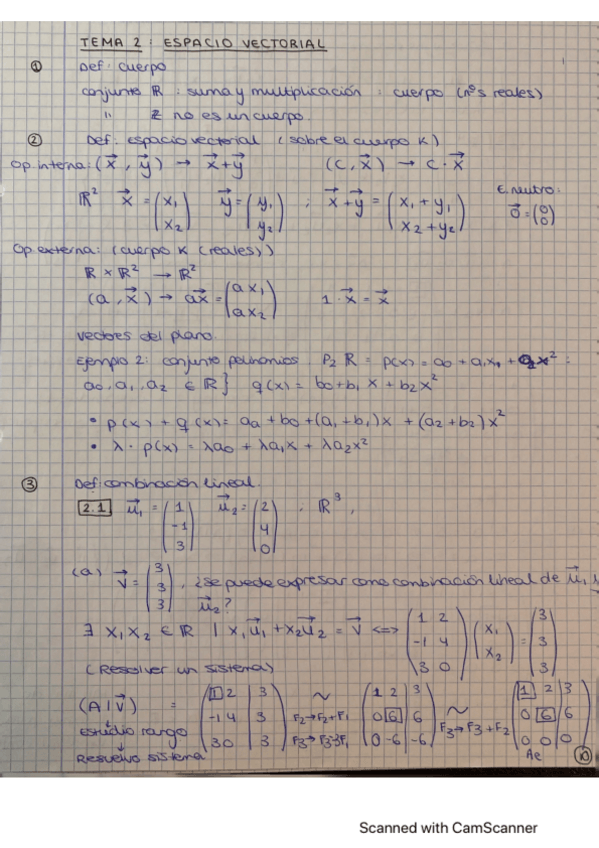 TEMA 2 : ESPACIO VECTORIAL
① Def: cuerpo
conjunto ℝ : suma y multiplicación : cuerpo (nºs reales)
" ℤ no es un cuerpo.
② Def: espacio vectorial (sobre el cuerpo K)
Op. interna: (x⃗, y⃗) → x⃗+y⃗ (c, x⃗) → c · x⃗
ℝ² x⃗ = (x₁ x₂) y⃗ = (y₁ y₂) ; x⃗+y⃗ = (x₁ + y₁ x₂ + y₂) E. neutro: 0⃗ = (0 0)
Op. externa: (cuerpo K (reales))
ℝ × ℝ² → ℝ²
(a, x⃗) → ax⃗ = (ax₁ ax₂) 1 · x⃗ = x⃗
vectores del plano.
Ejemplo 2: conjunto polinomios P₂ ℝ = p(x) = a₀ + a₁x₁ + a₂x² :
a₀, a₁, a₂ ∈ ℝ} q(x) = b₀ + b₁ x + b₂x²
• p(x) + q(x) = aₐ + b₀ + (a₁ + b₁)x + (a₂ + b₂)x²
• λ · p(x) = λa₀ + λa₁x + λa₂x²
③ Def: combinación lineal.
2.1 u⃗₁ = (1 -1 3) u⃗₂ = (2 4 0) . ℝ³,
(a) v⃗ = (3 3 3) , ¿se puede expresar como combinación lineal de u⃗₁ y
u⃗₂?
∃ x₁ x₂ ∈ ℝ | x₁u⃗₁ + x₂u⃗₂ = v⃗ <=> (1 2 -1 4 3 0) (x₁ x₂) = (3 3 3)
(Resolver un sistema)
(A | v⃗) = (1 2 | 3 -1 4 | 3 3 0 | 3) ~ F₂→F₂+F₁ F₃→F₃-3F₁ (1 2 | 3 0 6 | 6 0 -6 | -6) ~ F₃→F₃+F₂ (1 2 | 3 0 6 | 6 0 0 | 0)
Estudio rango
↓
Resuelvo sistema
Ae
⑩
Scanned with CamScanner